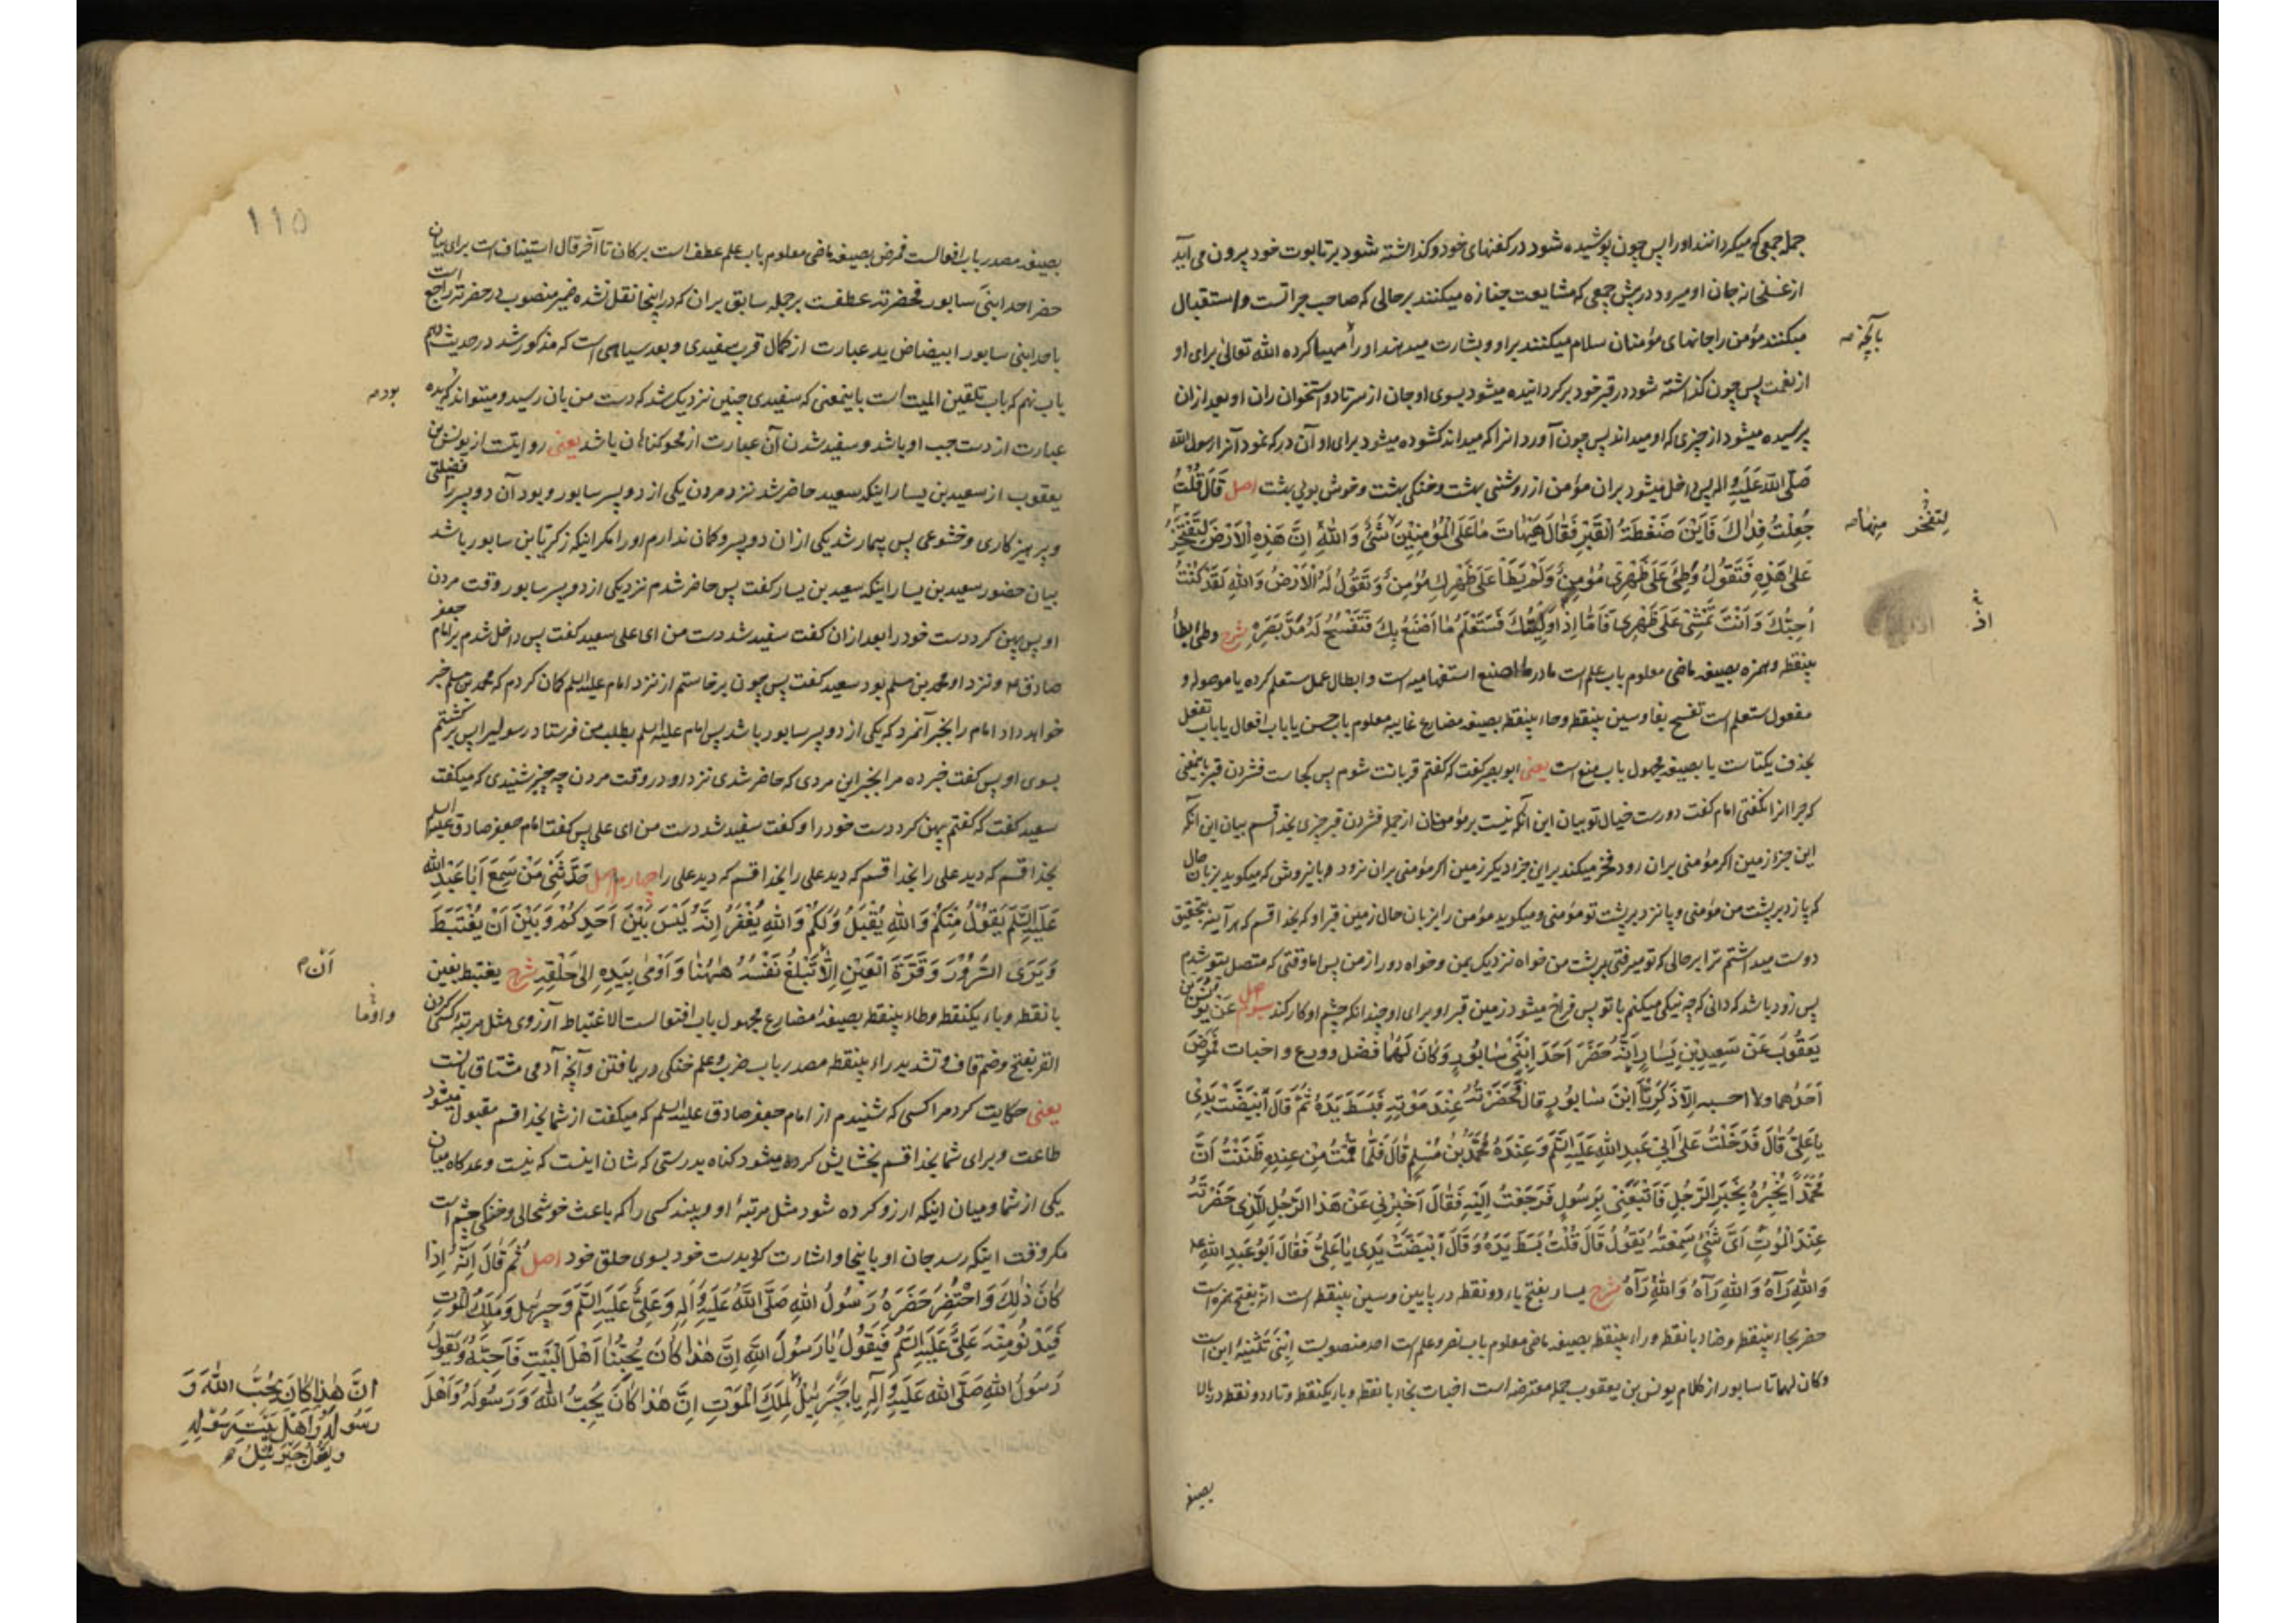 جمله جمعی که میکردانند او را پس چون پوشیده شود در کفنهای خود و کذاشته شود بر تابوت خود بیرون می آید
از غسلخانه جان او میرود در پیش جمعی که مشایعت جنازه میکنند بر حالی که صاحب جرات است و استقبال
میکنند مؤمن را جانهای مؤمنان سلام میکنند بر او و بشارت میدهند او را مهیا کرده الله تعالی برای او
بآنچه صه
از نعمت پس چون کذاشته شود در قبر خود برکردانیده میشود بسوی او جان از سر تا دو استخوان ران او بعد از ان
پرسیده میشود از چیزی که او میداند پس چون آورد انرا که میداند کشوده میشود برای او آن در که نمود آنرا رسول الله
صَلَّی اللّهُ عَلَیْهِ و اله پس داخل میشود بر ان مؤمن از روشنی بهشت و خنکی بهشت و خوش بویی بهشت اصل قَالَ قُلْتُ
جُعِلْتُ فِدَاكَ فَاَيْنَ ضَغْطَةُ الْقَبْرِ فَقَالَ هَيْهَاتَ مَا عَلَى الْمُؤْمِنِيْنَ شَئٌ وَاللّهِ اِنَّ هَذِهِ الْاَرْضَ لَتَفْتَخِرُ
لتفخر منها صه
عَلٰى هَذِهِ فَتَقُولُ وَطِئَ عَلَى ظَهْرِى مُؤْمِنٌ وَلَمْ يَطَأْ عَلَى ظَهْرِكِ مُؤْمِنٌ وَتَقُولُ لَهُ الْاَرْضُ وَاللّهِ لَقَدْ كُنْتُ
اُحِبُّكَ وَاَنْتَ تَمْشِىْ عَلَى ظَهْرِى فَاَمَّا اِذْ اوُلِّيْتُكَ فَسَتَعْلَمُ مَا اَصْنَعُ بِكَ فَتَفْسَحُ لَهُ مَدَّ بَصَرِهِ شرح وطئ بطاء
اذ
بینقطه و همزه بصیغه ماضی معلوم باب علم است ما در ما اصنع استفهامیه است و ابطال عمل ستعلم کرده یا موصوله و
مفعول ستعلم است تفسح بفا و سین بینقطه و حاء بینقطه بصیغه مضارع غایبه معلوم باب حسن یا باب افعال یا باب تفعل
بحذف یکتا است یا بصیغه مجهول باب منع است یعنی ابو بصیر کفت که کفتم قربانت شوم پس کجاست فشردن قبر باینمعنی
که چرا انرا نکفتی امام کفت دورست خیال تو بیان این آنکه نیست بر مؤمنان از جمله فشردن قبر چیزی بخدا قسم بیان این آنکه
این جزا زمین اکر مؤمنی بران رود فخر میکند بر این جزا دیکر زمین اکر مؤمنی بران نرود باین روش که میکوید بزبان حال
که پا زد بر پشت من مؤمنی و پا نزد بر پشت تو مؤمنی و میکوید مؤمن را بزبان حال زمین قبر او که بخدا قسم که هر آینه بتحقیق
دوست میداشتم ترا بر حالی که تو میرفتی بر پشت من خواه نزدیک بمن و خواه دور از من پس اما وقتی که متصل بتو شدم
پس زود باشد که دانی که چه نیکی میکنم با تو پس فراخ میشود زمین قبر او برای او چندانکه چشم او کار کند سوم اصل عَنْ يُونُسَ بْنِ
يَعْقُوبَ عَنْ سَعِيدِ بْنِ يَسَارٍ اَنَّهُ حَضَرَ اَحَدَ ابْنَىْ سَابُورٍ وَكَانَ لَهُمَا فَضْلٌ وورع و اخبات فَمَرِضَ
اَحَدُهُمَا ولا احسبه اِلَّا زَكَرِيَّا ابْنَ سَابُورٍ قال فَحَضَرْتُهُ عِنْدَ مَوْتِهِ فَبَسَطَ يَدَهُ ثُمَّ قَالَ ابْيَضَّتْ يَدِىْ
يَا عَلِىُّ قَالَ فَدَخَلْتُ عَلَى اَبِىْ عَبْدِ اللهِ عَلَيْهِ السَّلَمُ وَعِنْدَهُ مُحَمَّدُ بْنُ مُسْلِمٍ قَالَ فَلَمَّا قُمْتُ مِنْ عِنْدِهِ ظَنَنْتُ اَنَّ
مُحَمَّدًا يُخْبِرُهُ بِخَبَرِ الرَّجُلِ فَاَتْبَعَنِىْ بِرَسُولٍ فَرَجَعْتُ اِلَيْهِ فَقَالَ اَخْبِرْنِى عَنْ هَذَا الرَّجُلِ الَّذِى حَضَرْتَهُ
عِنْدَ الْمَوْتِ اَىَّ شَىْءٍ سَمِعْتَهُ يَقُولُ قَالَ قُلْتُ بَسَطَ يَدَهُ وَقَالَ ابْيَضَّتْ يَدِى يَا عَلِىُّ فَقَالَ اَبُو عَبْدِ اللهِ عله
وَاللهِ رَآهُ وَاللهِ رَآهُ وَاللهِ رَآهُ شرح یسار بفتح یاء دو نقطه در پایین و سین بینقطه است انّه بفتح همزه است
حضر بحاء بینقطه و ضاد بانقطه و راء بینقطه بصیغه ماضی معلوم باب نصر و علم است احد منصوبست اِبْنَىْ تثنیهٔ ابن است
و کان لهما تا سابور از کلام یونس بن یعقوب جمله معترضه است اخبات بخاء بانقطه و باء یکنقطه و تاء دو نقطه در بالا
بصیغه
۱۱۵
بصیغه مصدر باب افعالست فمرض بصیغه ماضی معلوم باب علم عطف است بر کان تا آخر قال استیناف است برای بیان
حضر احد ابنی سابور فحضرته عطفست بر جمله سابق بران که در اینجا نقل نشده ضمیر منصوب در حضرته راجع است
باحد ابنی سابور ابیضاض ید عبارت از کمال قرب سفیدی و بعد سیاهی است که مذکور شد در حدیث دهم
باب نهم که باب تلقین المیت است باینمعنی که سفیدی چنین نزدیک شد که دست من بان رسید و میتواند که ید
بود صه
عبارت از دست چپ او باشد و سفید شدن آن عبارت از محو کناهان باشد یعنی روایتست از یونس بن
یعقوب از سعید بن یسار اینکه سعید حاضر شد نزد مردن یکی از دو پسر سابور و بود آن دو پسر را فضلتی
و پرهیزکاری و خشوعی پس بیمار شد یکی از ان دو پسر و کمان ندارم او را مکر اینکه زکریا بن سابور باشد
بیان حضور سعید بن یسار اینکه سعید بن یسار کفت پس حاضر شدم نزد یکی از دو پسر سابور وقت مردن
او پس پهن کرد دست خود را بعد از ان کفت سفید شد دست من ای علی سعید کفت پس داخل شدم بر امام جعفر
صادق و نزد او محمد بن مسلم بود سعید کفت پس چون برخاستم از نزد امام علیه السلم کمان کردم که محمد بن مسلم خبر
خواهد داد امام را بخبر آنمرد که یکی از دو پسر سابور باشد پس امام علیه السلم بطلب من فرستاد رسولی را پس برکشتم
بسوی او پس کفت خبر ده مرا بخبر این مردی که حاضر شدی نزد او در وقت مردن چه چیز شنیدی که میکفت
سعید کفت که کفتم پهن کرد دست خود را و کفت سفید شد دست من ای علی پس کفت امام جعفر صادق علیه السلم
بخدا قسم که دید علی را بخدا قسم که دید علی را بخدا قسم که دید علی را چهارم اصل حَدَّثَنِىْ مَنْ سَمِعَ اَبَا عَبْدِ اللهِ
عَلَيْهِ السَّلَمُ يَقُوْلُ مِنْكُمْ وَاللهِ يُقْبَلُ وَلَكُمْ وَاللهِ يُغْفَرُ اِنَّهُ لَيْسَ بَيْنَ اَحَدِكُمْ وَبَيْنَ اَنْ يُغْتَبَطَ
وَيَرَى السُّرُوْرَ وَقُرَّةَ الْعَيْنِ اِلَّا تَبْلُغَ نَفْسُهُ هٰهُنَا وَاَوْمٰى بِيَدِهِ اِلٰى حَلْقِهِ شرح یغتبط بغین
اَنْ م
بانقطه و باء یکنقطه و طاء بینقطه بصیغهٔ مضارع مجهول باب افتعالست الاغتباط آرزوی مثل مرتبهٔ کسی کردن
و اوما
القر بفتح و ضم قاف و تشدید راء بینقطه مصدر باب ضرب و علم خنکی دریافتن و آنچه آدمی مشتاق بانست
یعنی حکایت کرد مرا کسی که شنیدم از امام جعفر صادق علیه السلم که میکفت از شما بخدا قسم مقبول میشود
طاعت و برای شما بخدا قسم بخشایش کرده میشود کناه بدرستی که شان اینست که نیست وعدکاه میان
یکی از شما و میان اینکه ارزو کرده شود مثل مرتبهٔ او و بیند کسی را که باعث خوشحالی و خنکی چشم است
مکر وقت اینکه رسد جان او باینجا و اشارت کرد بدست خود بسوی حلق خود اصل ثُمَّ قَالَ اِنَّهُ اِذَا
كَانَ ذٰلِكَ وَاحْتُضِرَ حَضَرَهُ رَسُولُ اللهِ صَلَّى اللّهُ عَلَيْهِ وَاٰلِهِ وَعَلِىٌّ عَلَيْهِ السَّلَمُ وَجِبْرَئِيلُ وَمَلَكُ الْمَوْتِ
فَيَدْنُو مِنْهُ عَلِىٌّ عَلَيْهِ السَّلَمُ فَيَقُولُ يَا رَسُولَ اللهِ اِنَّ هٰذَا كَانَ يُحِبُّنَا اَهْلَ الْبَيْتِ فَاَحِبَّهُ وَيَقُولُ
رَسُولُ اللهِ صَلَّى اللهُ عَلَيْهِ وَاٰلِهِ يَا جَبْرَئِيلُ لِمَلَكِ الْمَوْتِ اِنَّ هٰذَا كَانَ يُحِبُّ اللهَ وَرَسُولَهُ وَاَهْلَ
اِنَّ هٰذَا كَانَ يُحِبُّ اللهَ وَ
رَسُولَهُ وَاَهْلَ بَيْتِ رَسُولِهِ
ويقول جَبْرَئِيلُ م